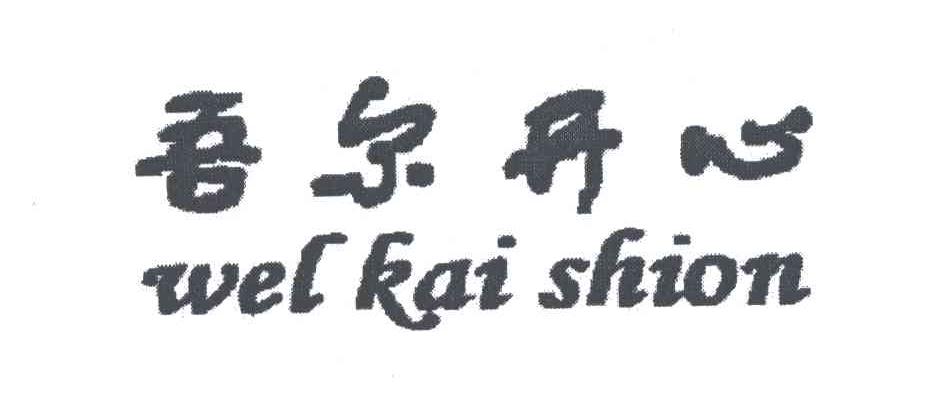 吾尔开心
wel kai shion